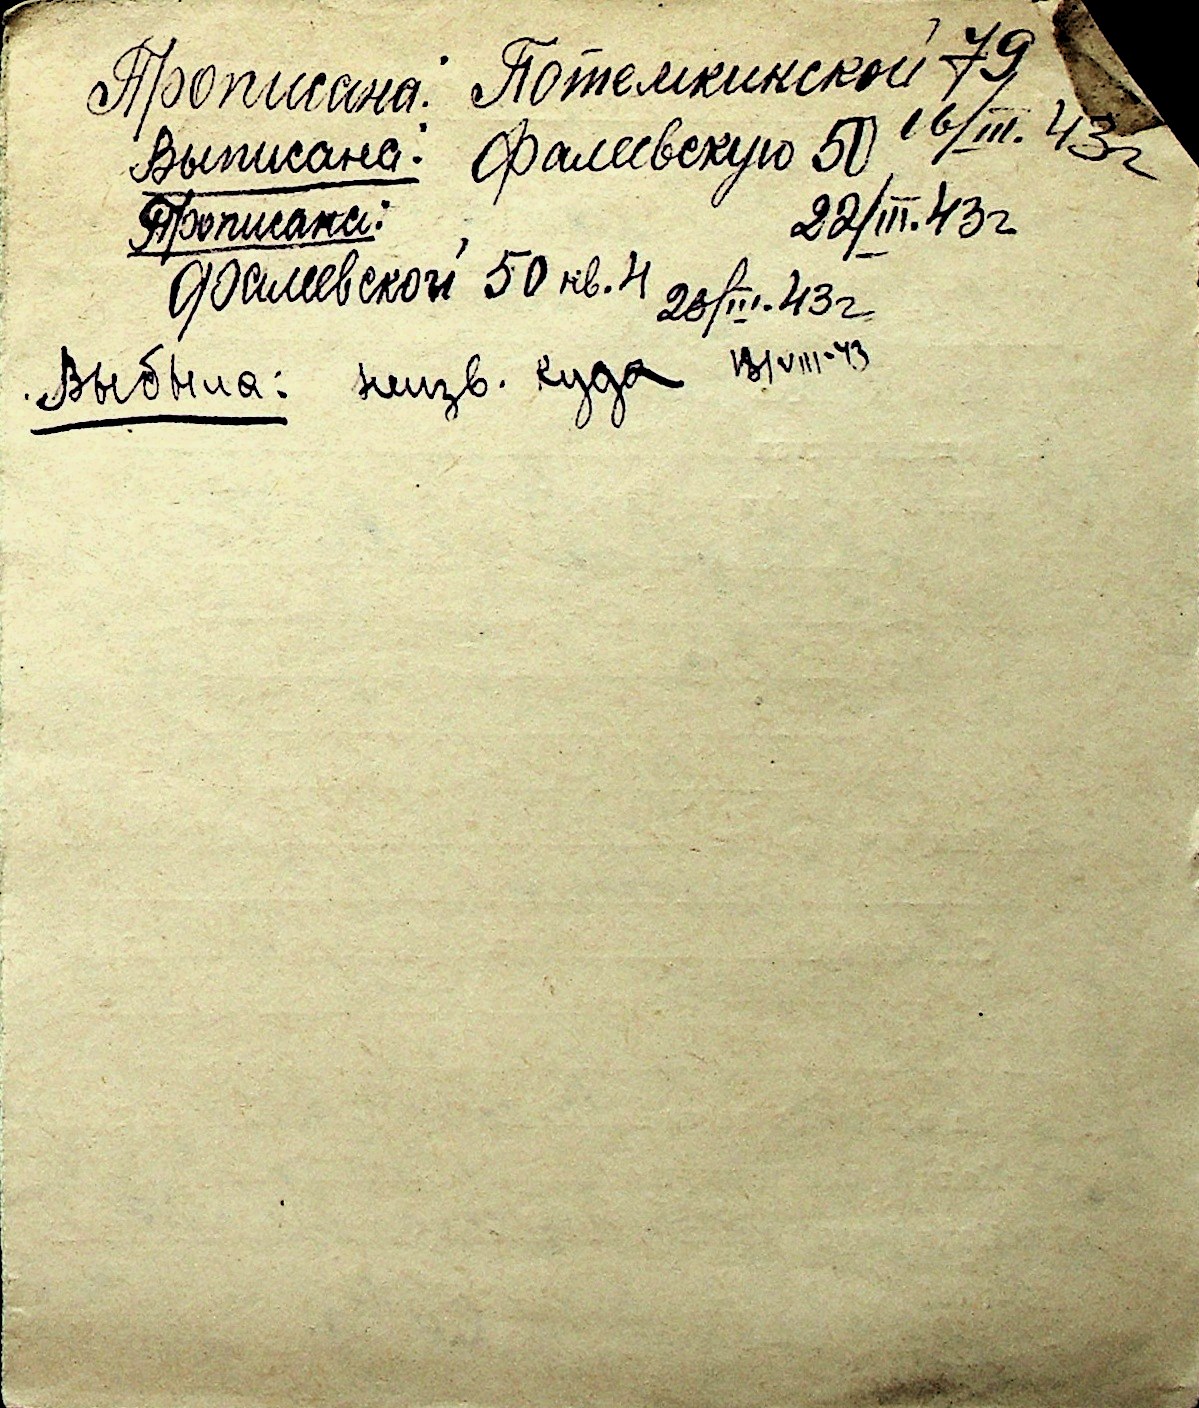 Прописана: Потемкинской 79
16/III. 43г
Выписана: Фалеевскую 50
Прописана: 22/III.43г
Фалеевской 50 кв. 4 23/III.43г
Выбыла: неизв. куда 13/VIII-43